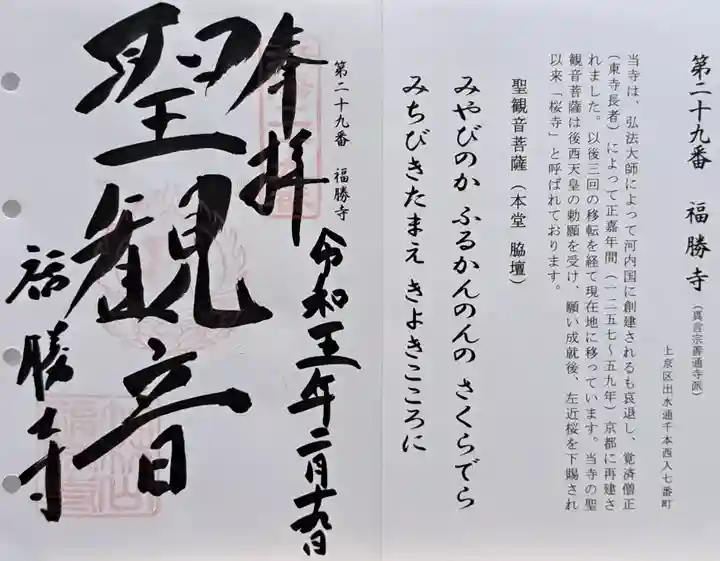 第二十九番 福勝寺（真言宗善通寺派）
上京区出水通千本西入七番町
当寺は、弘法大師によって河内国に創建されるも衰退し、覚済僧正
（東寺長者）によって正嘉年間（一二五七〜五九年）京都に再建さ
れました。以後三回の移転を経て現在地に移っています。当寺の聖
観音菩薩は後西天皇の勅願を受け、願い成就後、左近桜を下賜され
以来「桜寺」と呼ばれております。
聖観音菩薩（本堂 脇壇）
みやびのか ふるかんのんの さくらでら
みちびきたまえ きよきこころに
第二十九番 福勝寺
奉拝
令和五年二月十九日
聖観音
福勝寺